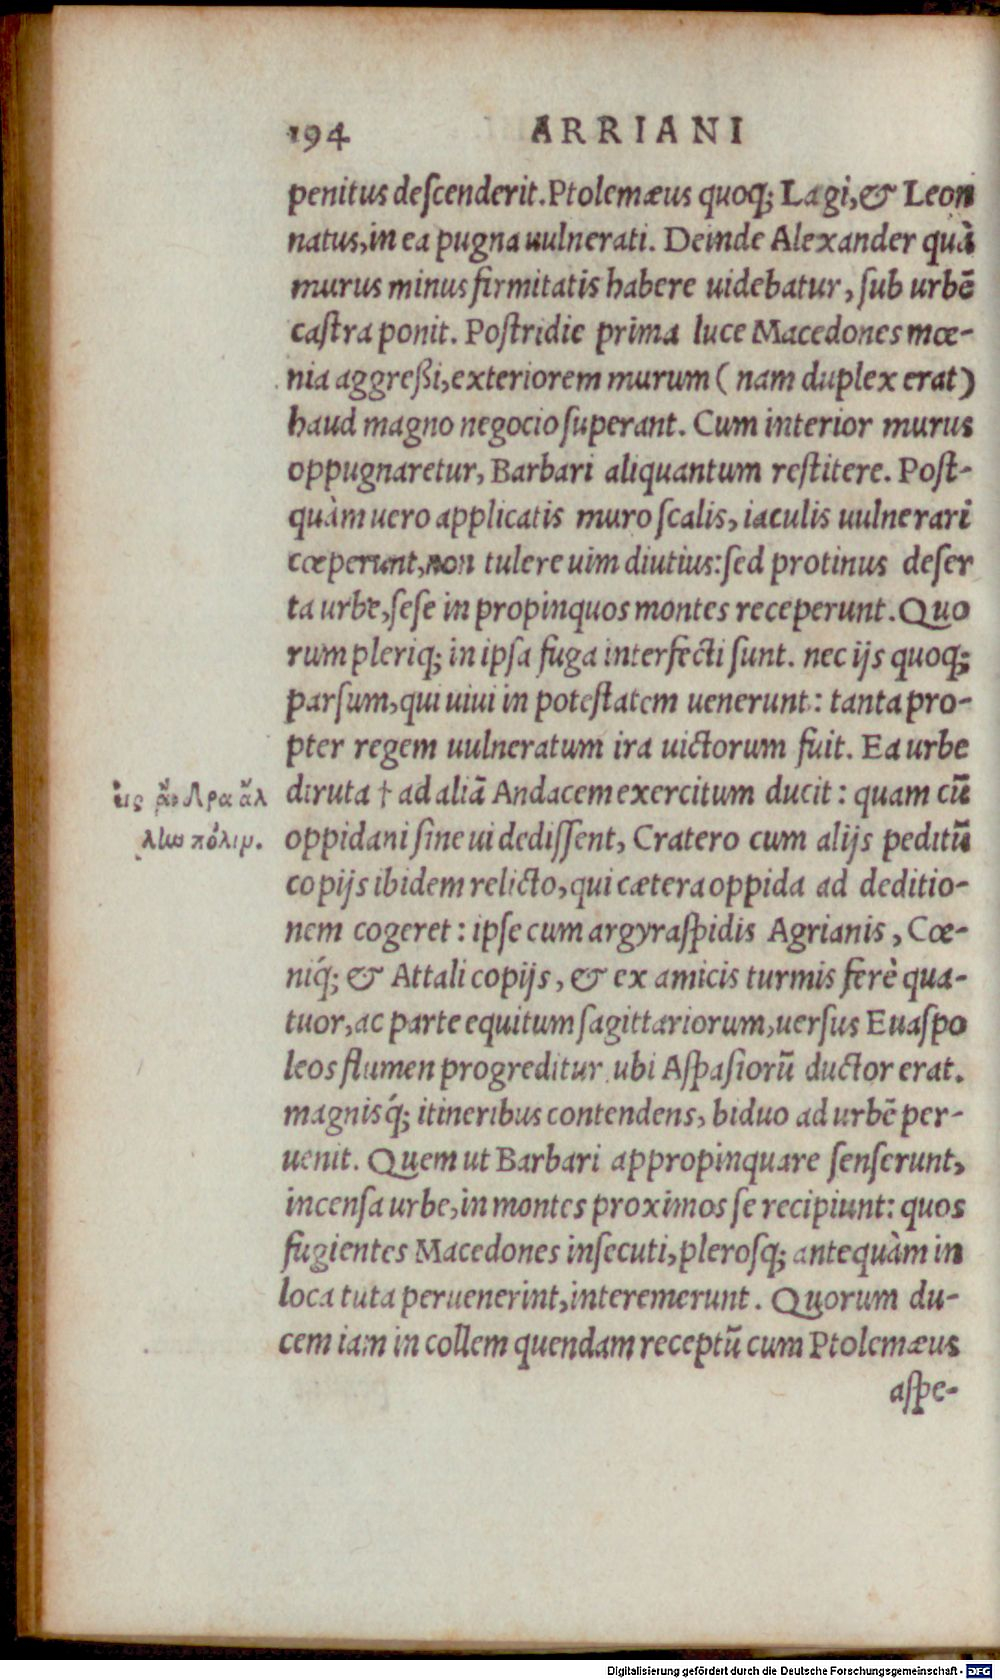 194 ARRIANI
penitus deſcenderit. Ptolemæus quoq; Lagi, & Leon
natus, in ea pugna uulnerati. Deinde Alexander quà
murus minus firmitatis habere uidebatur, ſub urbē
caſtra ponit. Poſtridie prima luce Macedones mœ-
nia aggreßi, exteriorem murum ( nam duplex erat)
haud magno negocio ſuperant. Cum interior murus
oppugnaretur, Barbari aliquantum reſtitere. Poſt-
quàm uero applicatis muro ſcalis, iaculis uulnerari
cœperunt, non tulere uim diutius: ſed protinus deſer
ta urbe, ſeſe in propinquos montes receperunt. Quo
rum pleriq; in ipſa fuga interfecti ſunt. nec ijs quoq;
parſum, qui uiui in poteſtatem uenerunt: tanta pro-
pter regem uulneratum ira uictorum fuit. Ea urbe
diruta † ad aliā Andacem exercitum ducit: quam cū
oppidani ſine ui dediſſent, Cratero cum alijs peditū
copijs ibidem relicto, qui cætera oppida ad deditio-
nem cogeret: ipſe cum argyraſpidis Agrianis, Cœ-
niq́; & Attali copijs, & ex amicis turmis ferè qua-
tuor, ac parte equitum ſagittariorum, uerſus Euaſpo
leos flumen progreditur, ubi Aſpaſiorū ductor erat.
magnisq́; itineribus contendens, biduo ad urbē per-
uenit. Quem ut Barbari appropinquare ſenſerunt,
incenſa urbe, in montes proximos ſe recipiunt: quos
fugientes Macedones inſecuti, pleroſq; antequàm in
loca tuta peruenerint, interemerunt. Quorum du-
cem iam in collem quendam receptū cum Ptolemæus
aſpe-
πόλιμ.
Digitalisierung gefördert durch die Deutsche Forschungsgemeinschaft - DFG